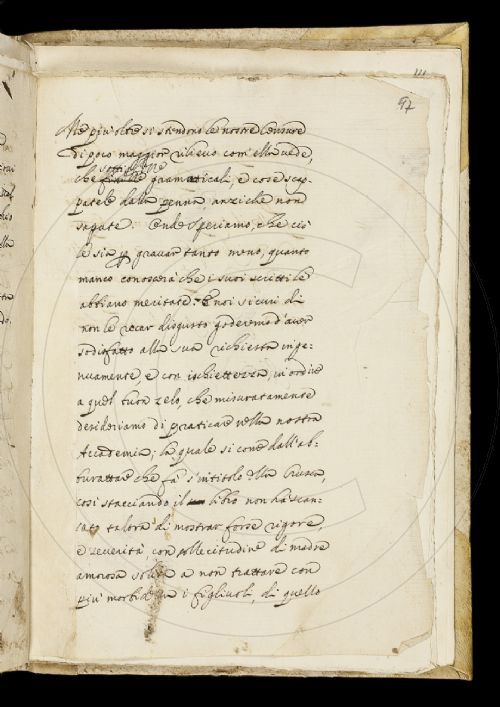 111
97
Ne piu' oltre si stendono le nostre Censure
di poco maggior rilievo com'ella vede,
sottigliezze
che gramaticali, e cose scap-
patele dalla penna, anzi che non
sapute. Onde speriamo, che ciò
le sia p gravar tanto meno, quanto
manco conoscerà che i suoi scritti le
abbiano meritate. E noi sicuri di
non le recar disgusto godremo d'aver
sodisfatto alla sua richiesta inge-
nuamente, e con ischiettezza, in ordine
a quel buon zelo, che misuratamente
desideriamo di praticare nella nostra
Accademia; la quale si come dall'ab-
burattare che fa s'intitolò della Crusca,
così stacciando il libro non ha scan-
sato talora di mostrar forse rigore,
e severità, con sollecitudine di madre
amorosa solita a non trattare con
piu' morbidezza i figliuoli, di quello